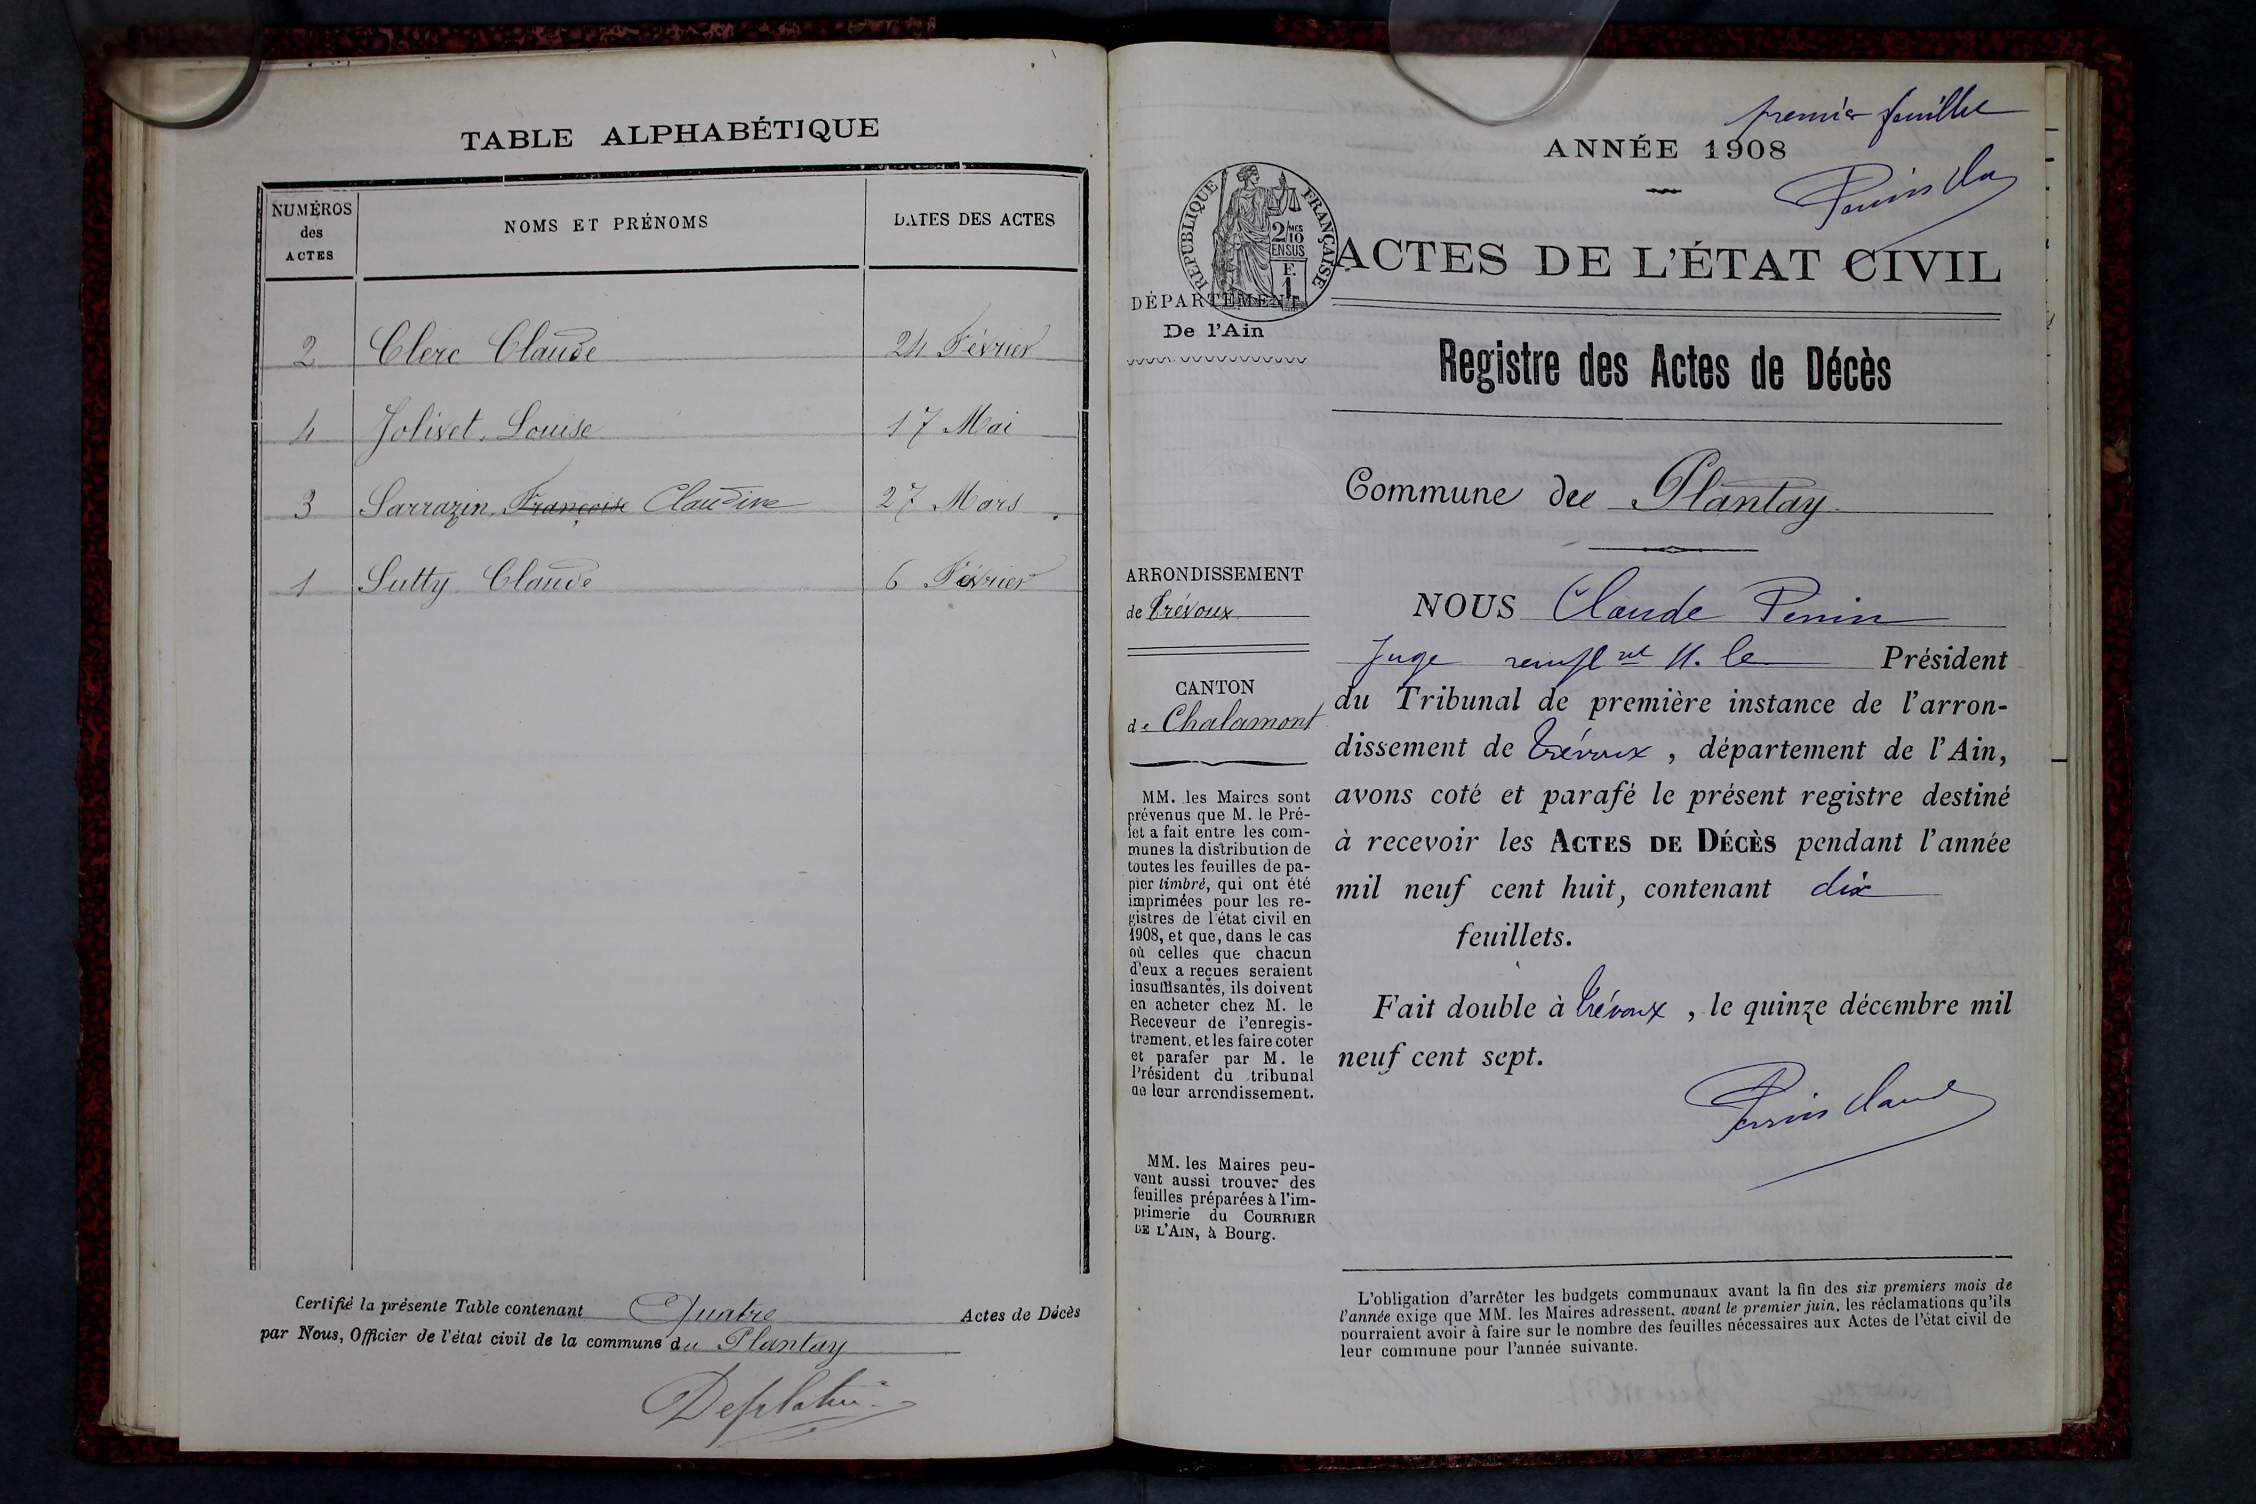 TABLE ALPHABÉTIQUE
NUMÉROS
des
ACTES
NOMS ET PRÉNOMS
DATES DES ACTES
2 Clerc Claude 24 Février
4 Jolivet, Louise 17 Mai
3 Sarrazin, Françoise Claudine 27 Mars
1 Sutty Claude 6 Février
Certifié la présente Table contenant Quatre Actes de Décès
par Nous, Officier de l'état civil de la commune du Plantay
premier feuillet
ANNÉE 1908
RÉPUBLIQUE FRANÇAISE
2/10 MES
EN SUS
F.
1
ACTES DE L'ÉTAT CIVIL
DÉPARTEMENT
De l'Ain
Registre des Actes de Décès
Commune du Plantay
ARRONDISSEMENT
de Trévoux
CANTON
de Chalamont
MM. les Maires sont
prévenus que M. le Pré-
fet a fait entre les com-
munes la distribution de
toutes les feuilles de pa-
pier timbré, qui ont été
imprimées pour les re-
gistres de l'état civil en
1908, et que, dans le cas
où celles que chacun
d'eux a reçues seraient
insuffisantes, ils doivent
en acheter chez M. le
Receveur de l'enregis-
trement, et les faire coter
et parafer par M. le
Président du tribunal
de leur arrondissement.
MM. les Maires peu-
vent aussi trouver des
feuilles préparées à l'im-
primerie du COURRIER
DE L'AIN, à Bourg.
NOUS Claude Perrin
Juge rempl nt M. le Président
du Tribunal de première instance de l'arron-
dissement de Trévoux, département de l'Ain,
avons coté et parafé le présent registre destiné
à recevoir les ACTES DE DÉCÈS pendant l'année
mil neuf cent huit, contenant dix
feuillets.
Fait double à Trévoux, le quinze décembre mil
neuf cent sept.
Perrin Claude
L'obligation d'arrêter les budgets communaux avant la fin des six premiers mois de
l'année exige que MM. les Maires adressent, avant le premier juin, les réclamations qu'ils
pourraient avoir à faire sur le nombre des feuilles nécessaires aux Actes de l'état civil de
leur commune pour l'année suivante.